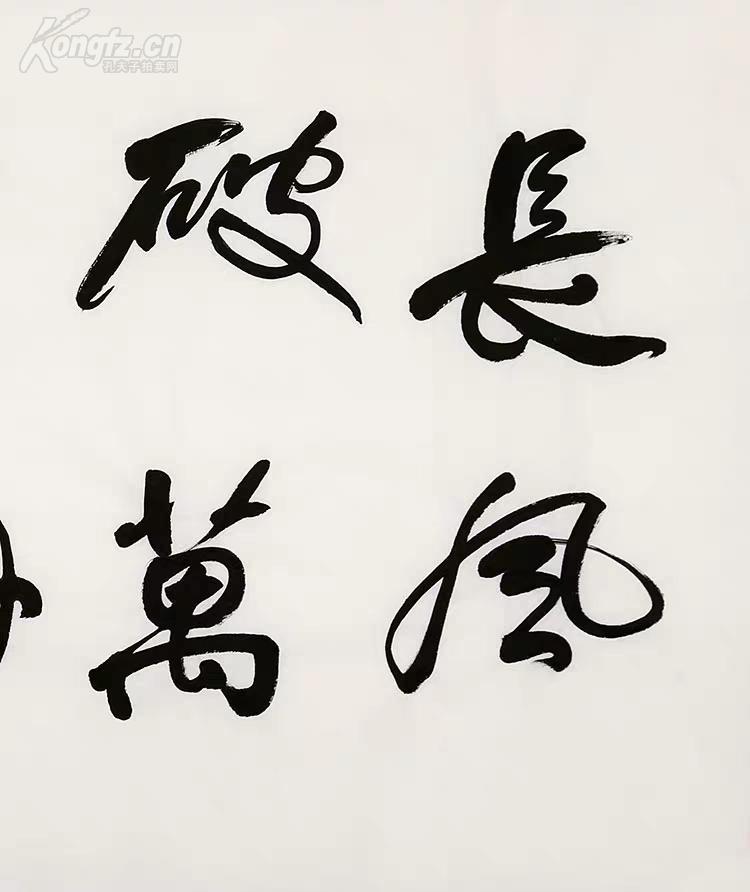 長風
破萬
Kongfz.cn
孔夫子拍卖网